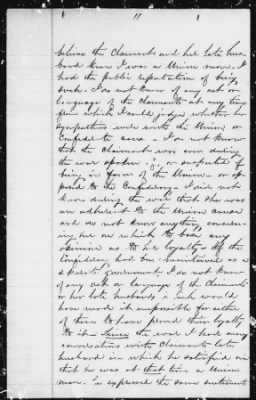 11
believe the Claimants and her late hus
band knew I was a Union man. I
had the public reputation of being
such. I do not know of any act or
language of the Claimants at any time
from which I could judge whether her
sympathies were with the Union or
Confederate cause. I do not know
that the Claimant was ever during
the war spoken of, or suspected of
being in favor of the Union or op
posed to the Confederacy. I did not
know during the war that she was
an adherent to the Union cause
and do not know anything concern
ing her on which to base any
opinion as to her loyalty. If the
Confederacy had been maintained as a
separate government, I do not know
of any act or language of the Claimants
or her late husbands which would
have made it impossible for either
of them to have proved their loyalty
to it. Since the war I had many
conversations with Claimants late
husband in which he satisfied me
that he was at that time a Union
man. He expressed the same sentiments